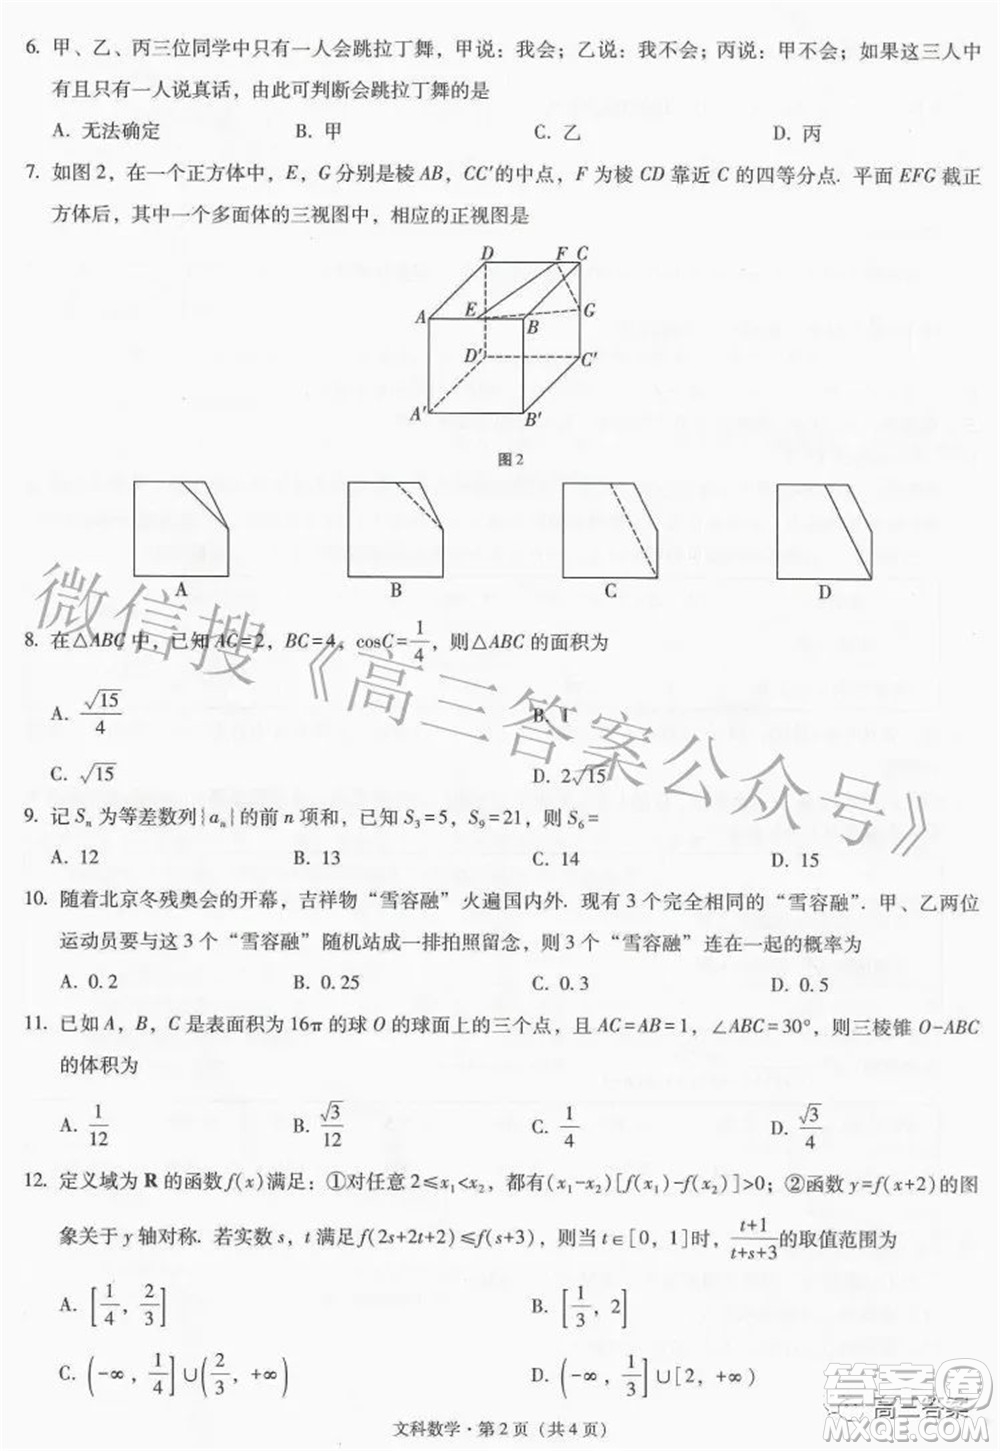 6. 甲、乙、丙三位同学中只有一人会跳拉丁舞，甲说：我会；乙说：我不会；丙说：甲不会；如果这三人中
有且只有一人说真话，由此可判断会跳拉丁舞的是
A. 无法确定 B. 甲 C. 乙 D. 丙
7. 如图 2，在一个正方体中，E，G 分别是棱 AB，CC′的中点，F 为棱 CD 靠近 C 的四等分点. 平面 EFG 截正
方体后，其中一个多面体的三视图中，相应的正视图是
D F C
A E B G
D′ C′
A′ B′
图 2
A B C D
8. 在△ABC 中，已知 AC=2，BC=4，cosC=1/4，则△ABC 的面积为
A. √15/4 B. 1
C. √15 D. 2√15
9. 记 Sₙ 为等差数列{aₙ}的前 n 项和，已知 S₃=5，S₉=21，则 S₆=
A. 12 B. 13 C. 14 D. 15
10. 随着北京冬残奥会的开幕，吉祥物“雪容融”火遍国内外. 现有 3 个完全相同的“雪容融”. 甲、乙两位
运动员要与这 3 个“雪容融”随机站成一排拍照留念，则 3 个“雪容融”连在一起的概率为
A. 0.2 B. 0.25 C. 0.3 D. 0.5
11. 已知 A，B，C 是表面积为 16π 的球 O 的球面上的三个点，且 AC=AB=1，∠ABC=30°，则三棱锥 O-ABC
的体积为
A. 1/12 B. √3/12 C. 1/4 D. √3/4
12. 定义域为 R 的函数 f(x) 满足：①对任意 2≤x₁<x₂，都有(x₁-x₂)[f(x₁)-f(x₂)]>0；②函数 y=f(x+2)的图
象关于 y 轴对称. 若实数 s，t 满足 f(2s+2t+2)≤f(s+3)，则当 t∈[0，1]时，(t+1)/(t+s+3) 的取值范围为
A. [1/4，2/3] B. [1/3，2]
C. (-∞，1/4]∪(2/3，+∞) D. (-∞，1/3]∪[2，+∞)
文科数学·第 2 页（共 4 页）
微信搜《高三答案公众号》
答案圈
高三答案